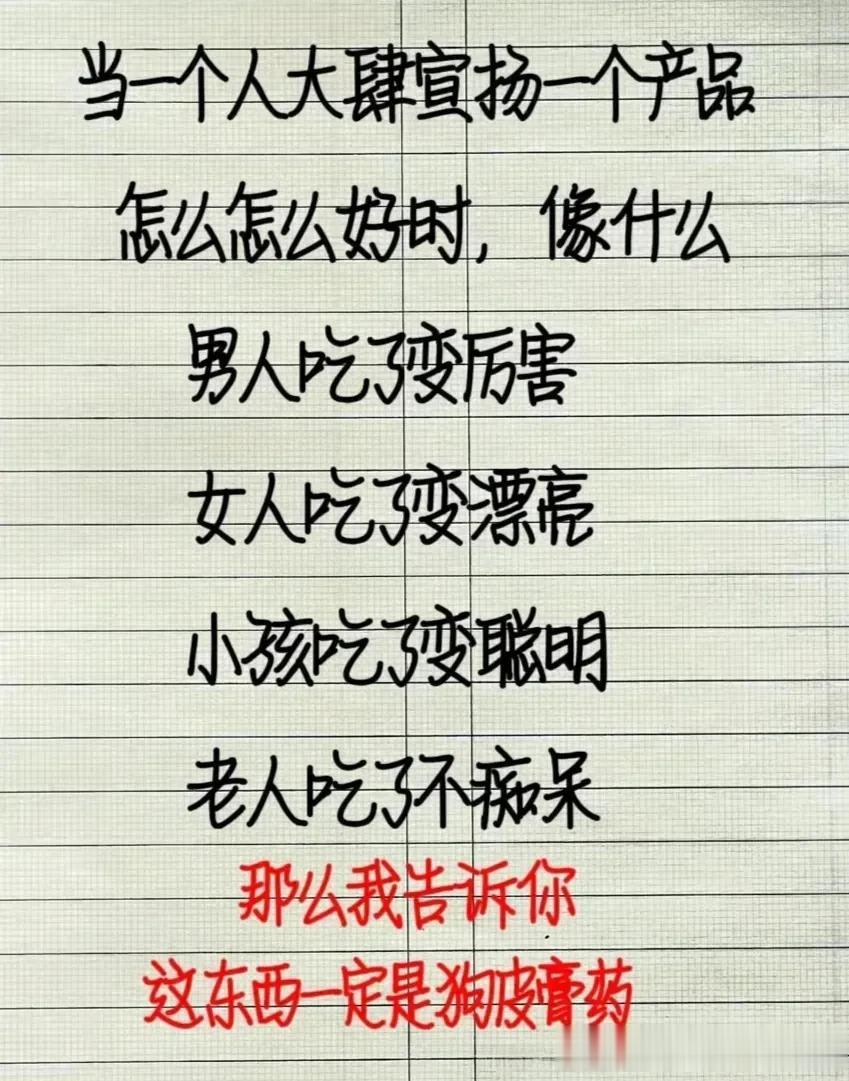 当一个人大肆宣扬一个产品
怎么怎么好时，像什么
男人吃了变厉害
女人吃了变漂亮
小孩吃了变聪明
老人吃了不痴呆
那么我告诉你
这东西一定是狗皮膏药